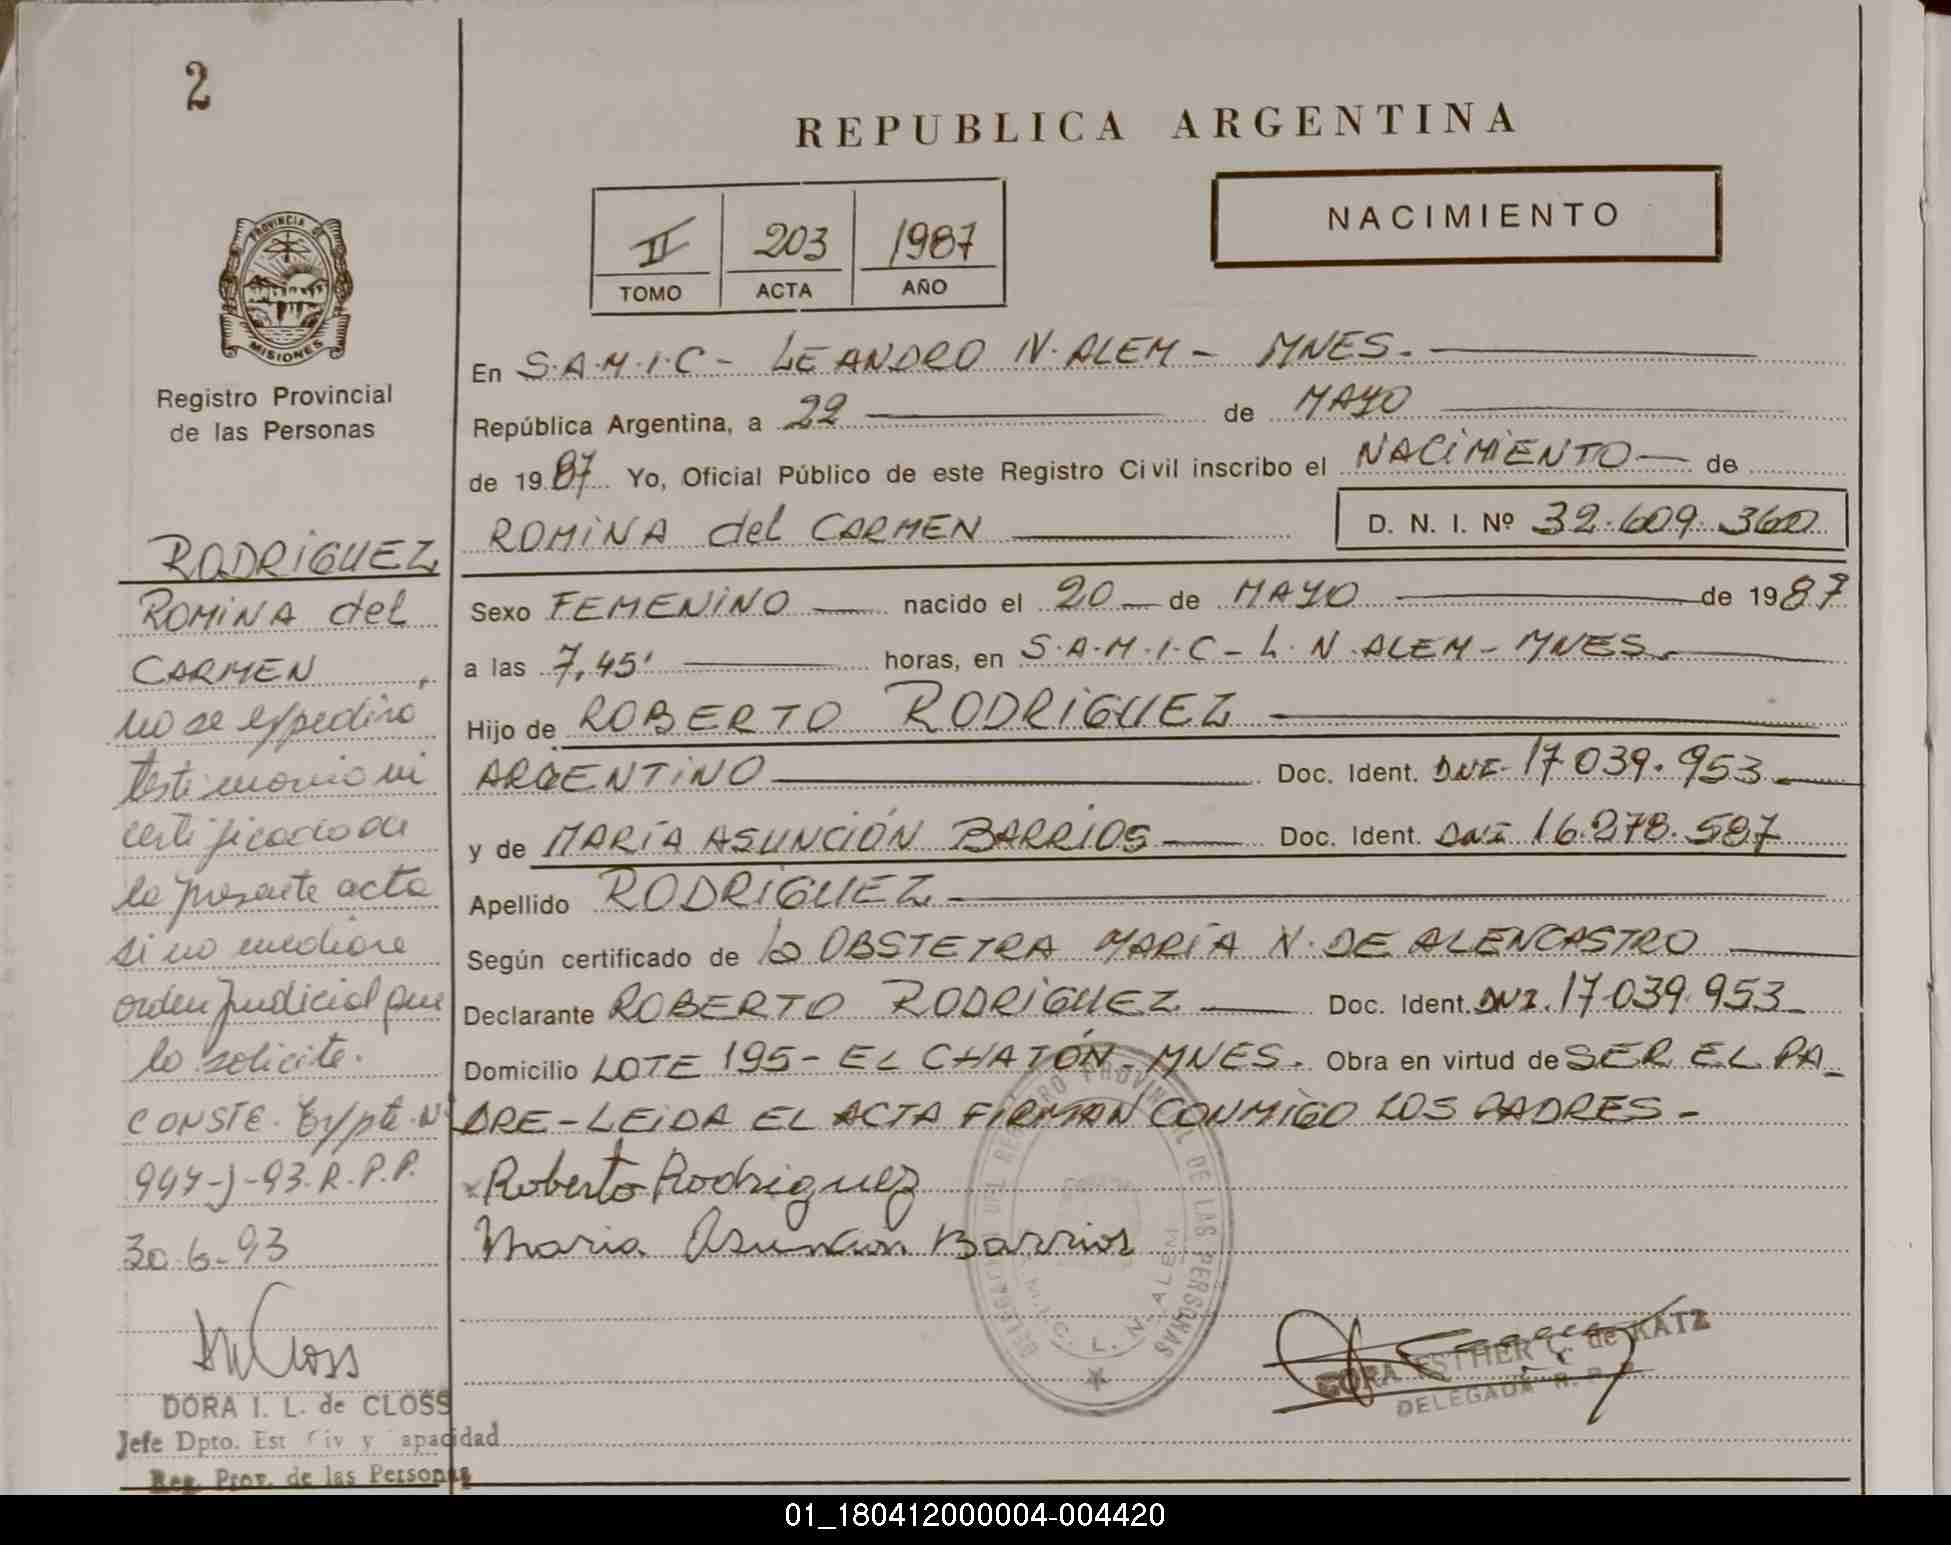 2
REPUBLICA ARGENTINA
NACIMIENTO
II 203 1987
TOMO ACTA AÑO
PROVINCIA DE
MISIONES
Registro Provincial
de las Personas
En S.A.M.I.C - LEANDRO N. ALEM - MNES.
República Argentina, a 22 de MAYO
de 1987 Yo, Oficial Público de este Registro Civil inscribo el NACIMIENTO de
ROMINA del CARMEN D. N. I. Nº 32.609.360
Sexo FEMENINO nacido el 20 de MAYO de 1987
a las 7,45' horas, en S.A.M.I.C - L. N. ALEM - MNES.
Hijo de ROBERTO RODRIGUEZ
ARGENTINO Doc. Ident. DNI. 17.039.953
y de MARÍA ASUNCIÓN BARRIOS Doc. Ident. DNI 16.278.587
Apellido RODRIGUEZ
Según certificado de la OBSTETRA MARÍA N. DE ALENCASTRO
Declarante ROBERTO RODRIGUEZ Doc. Ident. DNI. 17.039.953
Domicilio LOTE 195 - EL CHATÓN - MNES. Obra en virtud de SER EL PA-
DRE - LEIDA EL ACTA FIRMAN CONMIGO LOS PADRES -
Roberto Rodriguez
Maria Asuncion Barrios
RODRIGUEZ
ROMINA del
CARMEN,
no se expedirá
testimonio ni
certificado de
la presente acta
si no mediare
orden judicial que
lo solicite.
CONSTE. Expte. Nº
994-J-93. R.P.P.
30-6-93
DORA I. L. de CLOSS
Jefe Dpto. Est Civ y Capacidad
Reg. Prov. de las Personas
REGISTRO PROVINCIAL DE LAS PERSONAS
L. N. ALEM
ESTHER C. de KATZ
DELEGADA R. P. P.
01_180412000004-004420